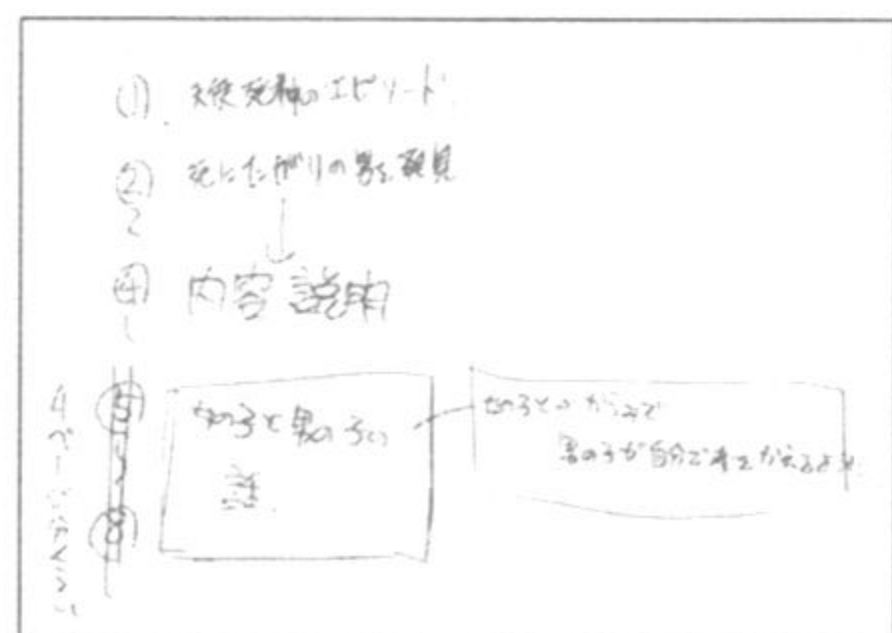 ① 天使死神のエピソード
② 死にたがりの男を発見
〜
④ 内容説明
4ページ
⑤
〜
⑧
女の子と男の子の
話
女の子との からみで
男の子が自分で